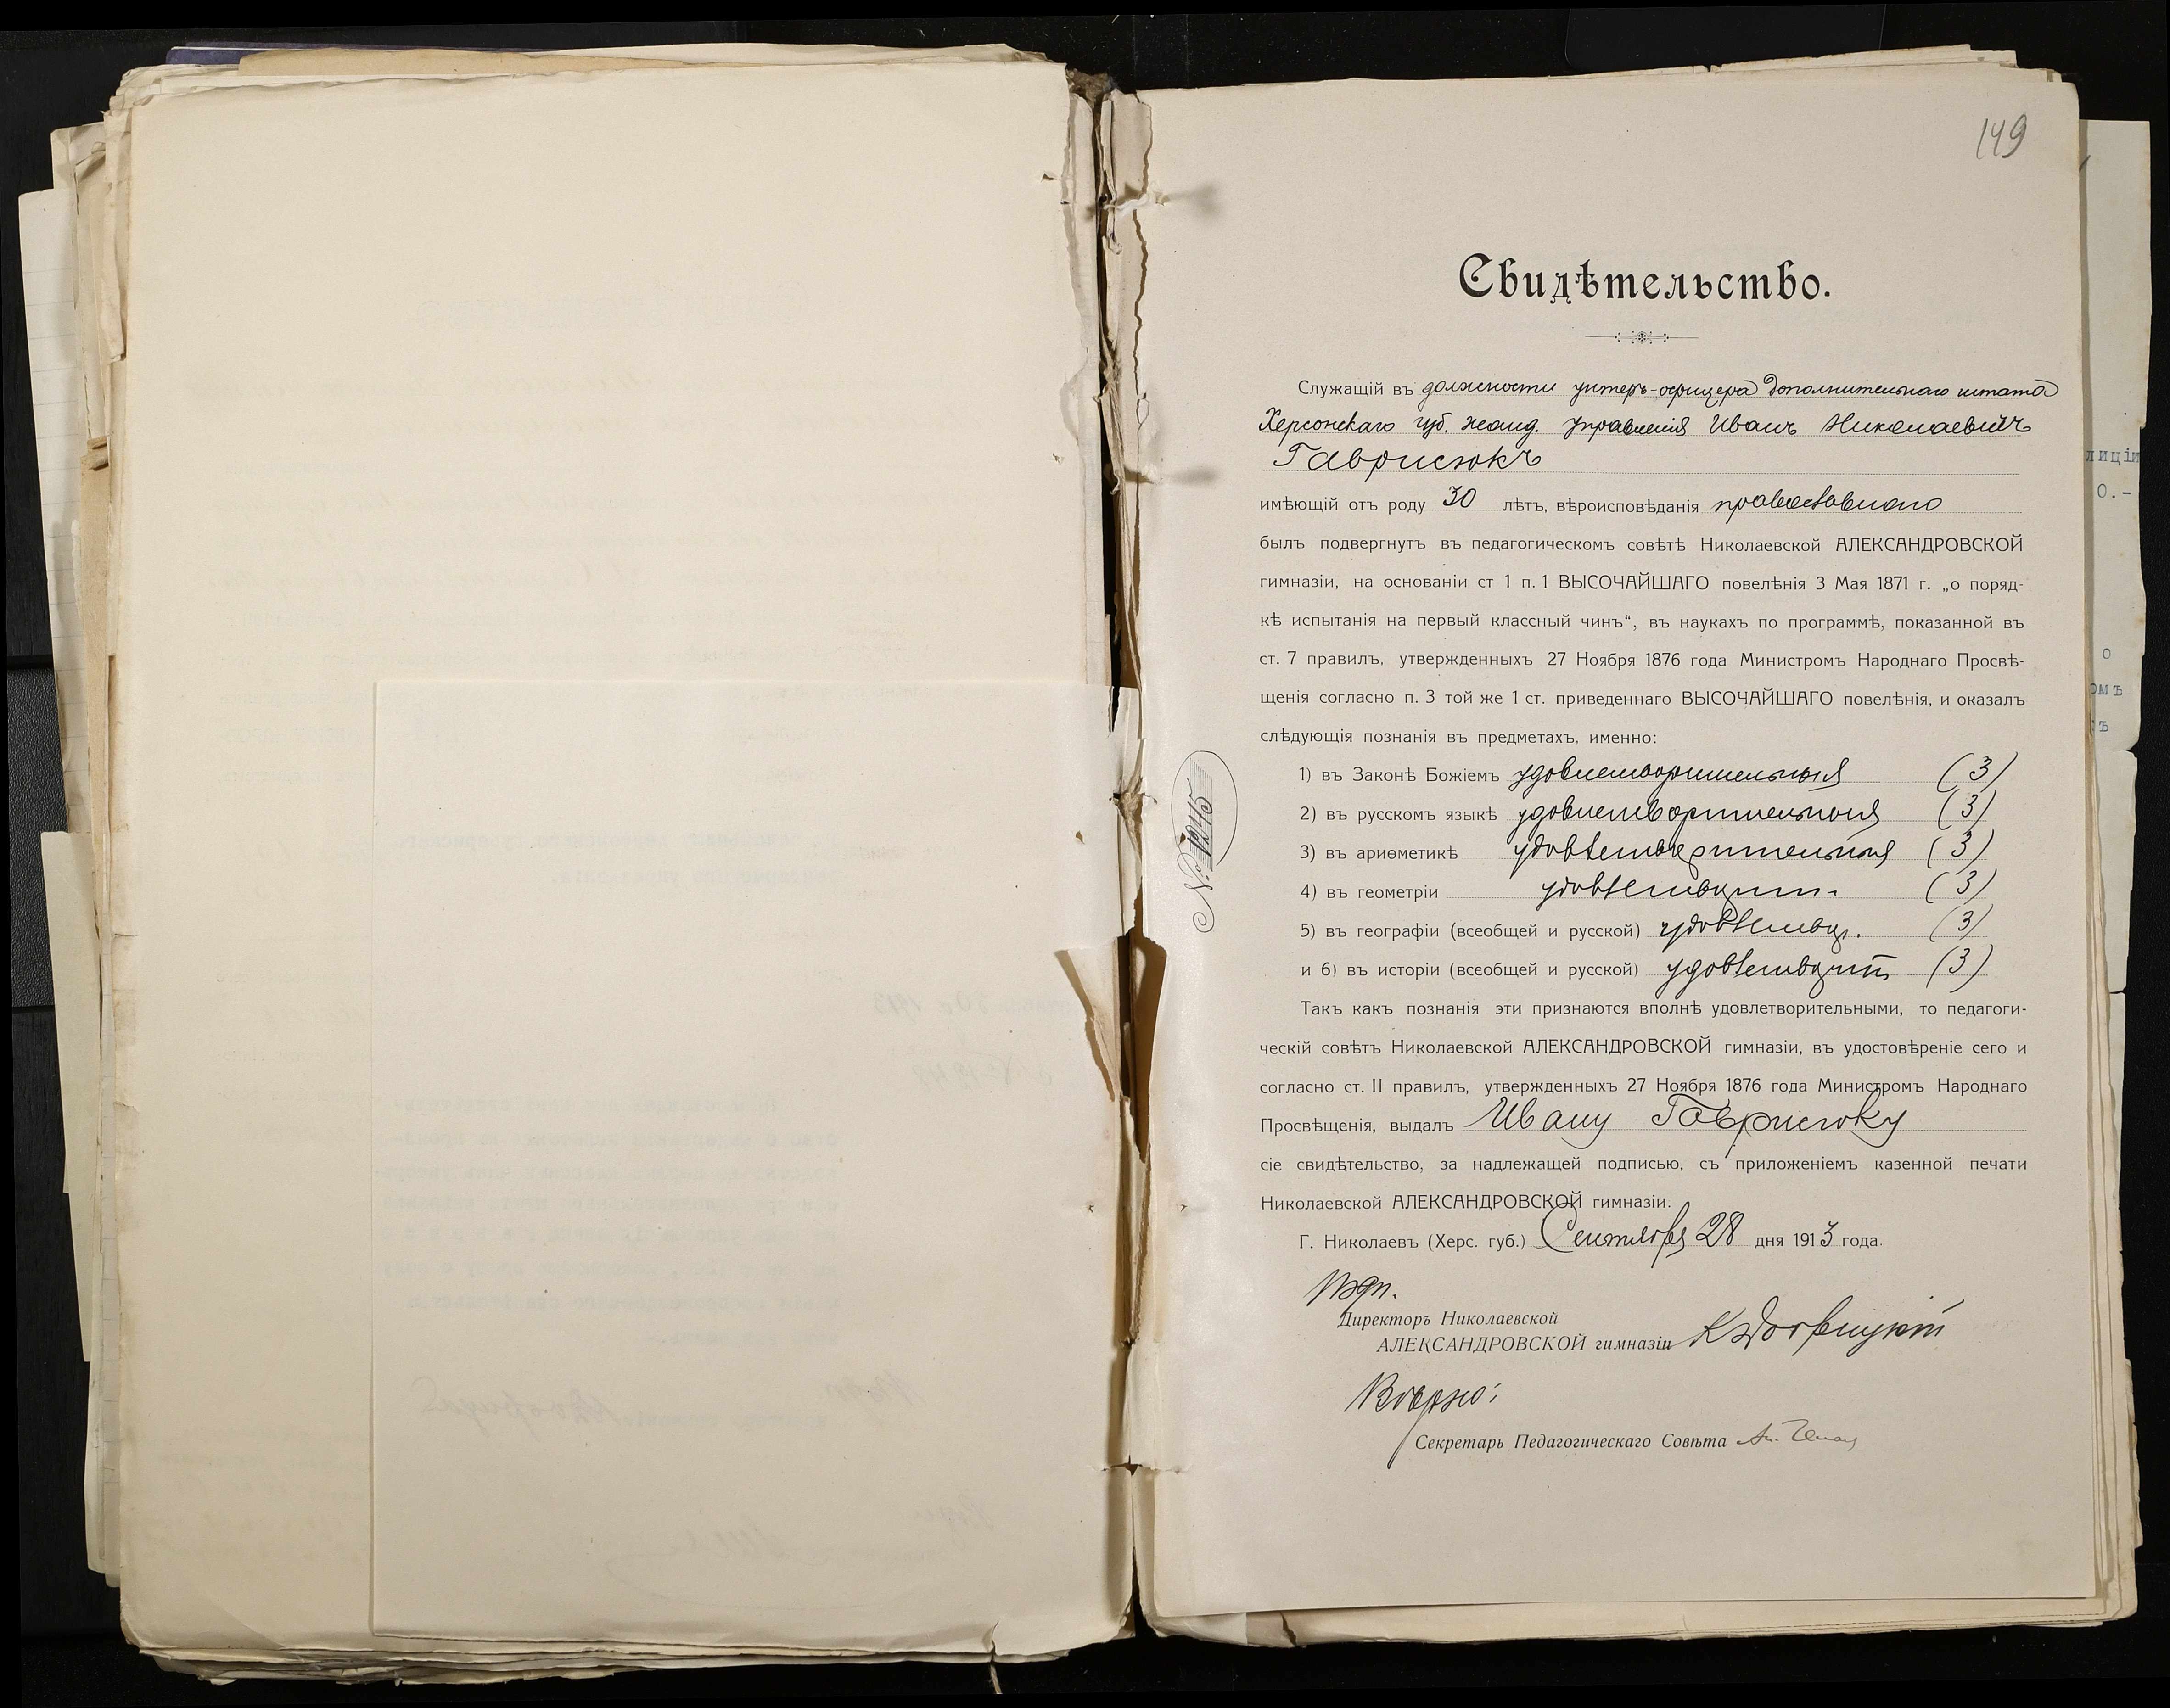 149
Свидѣтельство.
Служащій въ должности унтеръ-офицера дополнительнаго штата
Херсонскаго губ. жанд. управленія Иванъ Николаевичъ
Гаврисюкъ
имѣющій отъ роду 30 лѣтъ, вѣроисповѣданія православнаго
былъ подвергнутъ въ педагогическомъ совѣтѣ Николаевской АЛЕКСАНДРОВСКОЙ
гимназіи, на основаніи ст 1 п. 1 ВЫСОЧАЙШАГО повелѣнія 3 Мая 1871 г. „о поряд-
кѣ испытанія на первый классный чинъ“, въ наукахъ по программѣ, показанной въ
ст. 7 правилъ, утвержденныхъ 27 Ноября 1876 года Министромъ Народнаго Просвѣ-
щенія согласно п. 3 той же 1 ст. приведеннаго ВЫСОЧАЙШАГО повелѣнія, и оказалъ
слѣдующія познанія въ предметахъ, именно:
1) въ Законѣ Божіемъ удовлетворительныя (3)
2) въ русскомъ языкѣ удовлетворительныя (3)
3) въ ариѳметикѣ удовлетворительныя (3)
4) въ геометріи удовлетворит. (3)
5) въ географіи (всеобщей и русской) удовлетвор. (3)
и 6) въ исторіи (всеобщей и русской) удовлетворит (3)
Такъ какъ познанія эти признаются вполнѣ удовлетворительными, то педагоги-
ческій совѣтъ Николаевской АЛЕКСАНДРОВСКОЙ гимназіи, въ удостовѣреніе сего и
согласно ст. II правилъ, утвержденныхъ 27 Ноября 1876 года Министромъ Народнаго
Просвѣщенія, выдалъ Ивану Гаврисюку
сіе свидѣтельство, за надлежащей подписью, съ приложеніемъ казенной печати
Николаевской АЛЕКСАНДРОВСКОЙ гимназіи.
Г. Николаевъ (Херс. губ.) Сентября 28 дня 1913 года.
Директоръ Николаевской
АЛЕКСАНДРОВСКОЙ гимназіи
Вѣрно:
Секретарь Педагогическаго Совѣта
№ 1245
лиціи
0.-
о
омъ
ъ